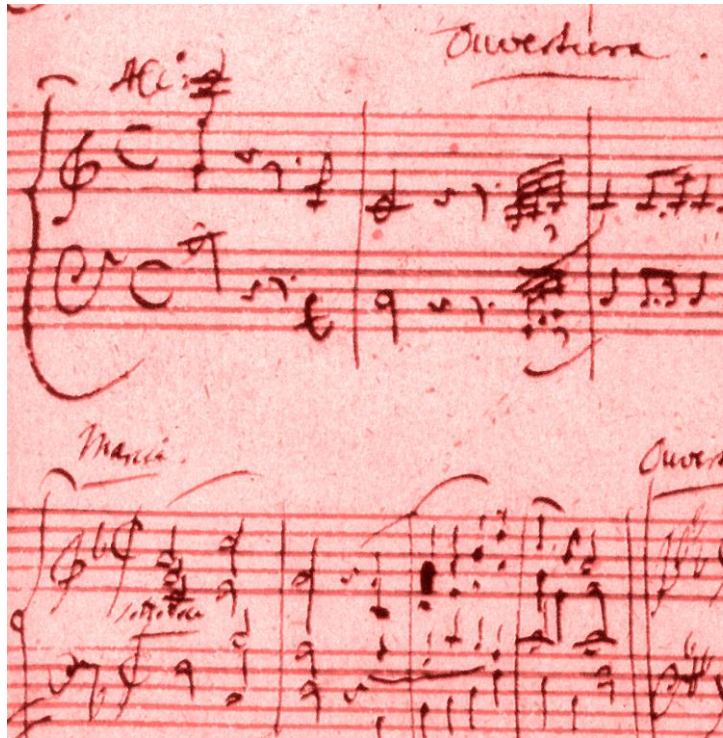 Ouvertura.
Marcia.
Ouvert